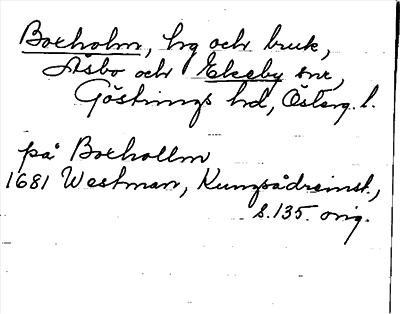 Boxholm, hg och bruk,
Åsbo och Ekeby snr,
Göstrings hd, Österg. l.
på Boxhollm
1681 Westman, Kungsådreinst.,
s. 135. orig.